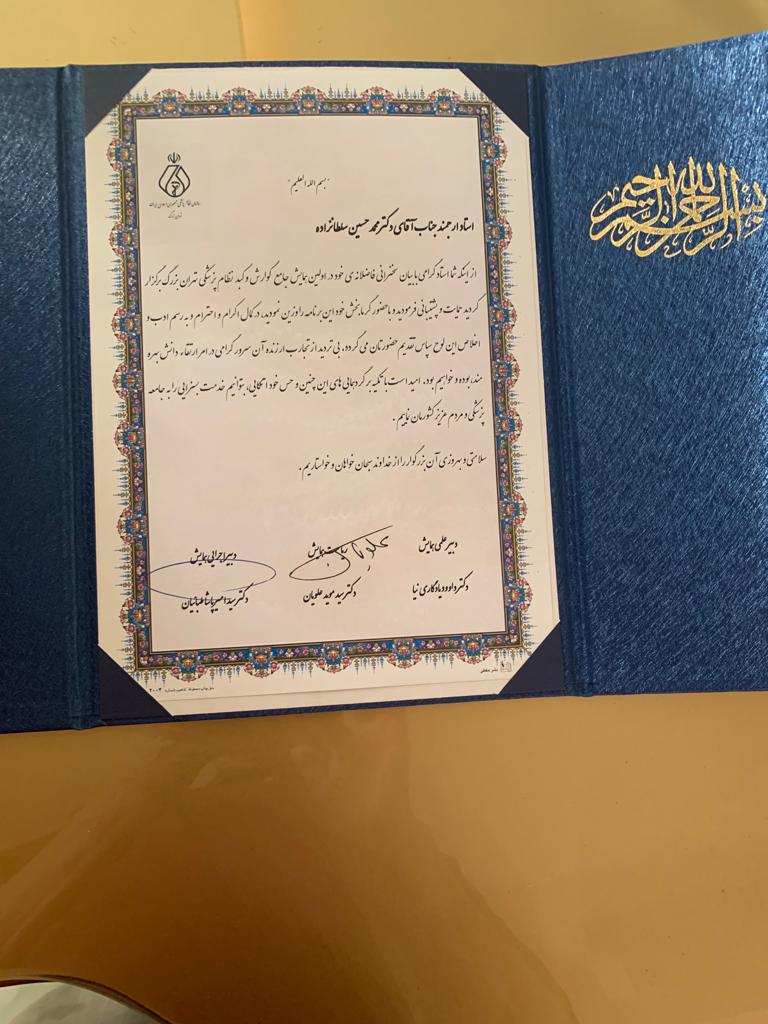 بسم الله الرحمن الرحیم
سازمان نظام پزشکی جمهوری اسلامی ایران
تهران بزرگ
"بسم الله العلیم"
استاد ارجمند جناب آقای دکتر محمد حسین سلطانزاده
از اینکه شما استاد گرامی با بیان سخنرانی فاضلانه ی خود در اولین همایش جامع گوارش و کبد نظام پزشکی تهران بزرگ برگزار
گردید حمایت و پشتیبانی فرمودید و با حضور گرمابخش خود این برنامه را وزین نمودید، در کمال اکرام و احترام و به رسم ادب و
اخلاص این لوح سپاس تقدیم حضورتان می گردد. بی تردید از تجارب ارزنده آن سرور گرامی در امر ارتقاء دانش بهره
مند بوده و خواهیم بود. امید است با تکیه بر گردهمایی های این چنین و حس خود اتکایی، بتوانیم خدمت بسزایی را به جامعه
پزشکی و مردم عزیز کشورمان نماییم.
سلامتی و بهروزی آن بزرگوار را از خداوند سبحان خواهان و خواستاریم.
دبیر علمی همایش
ریاست همایش
دبیر اجرایی همایش
دکتر داوود یادگاری نیا
دکتر سید موید علویان
دکتر سید امیر پاشا طبائیان